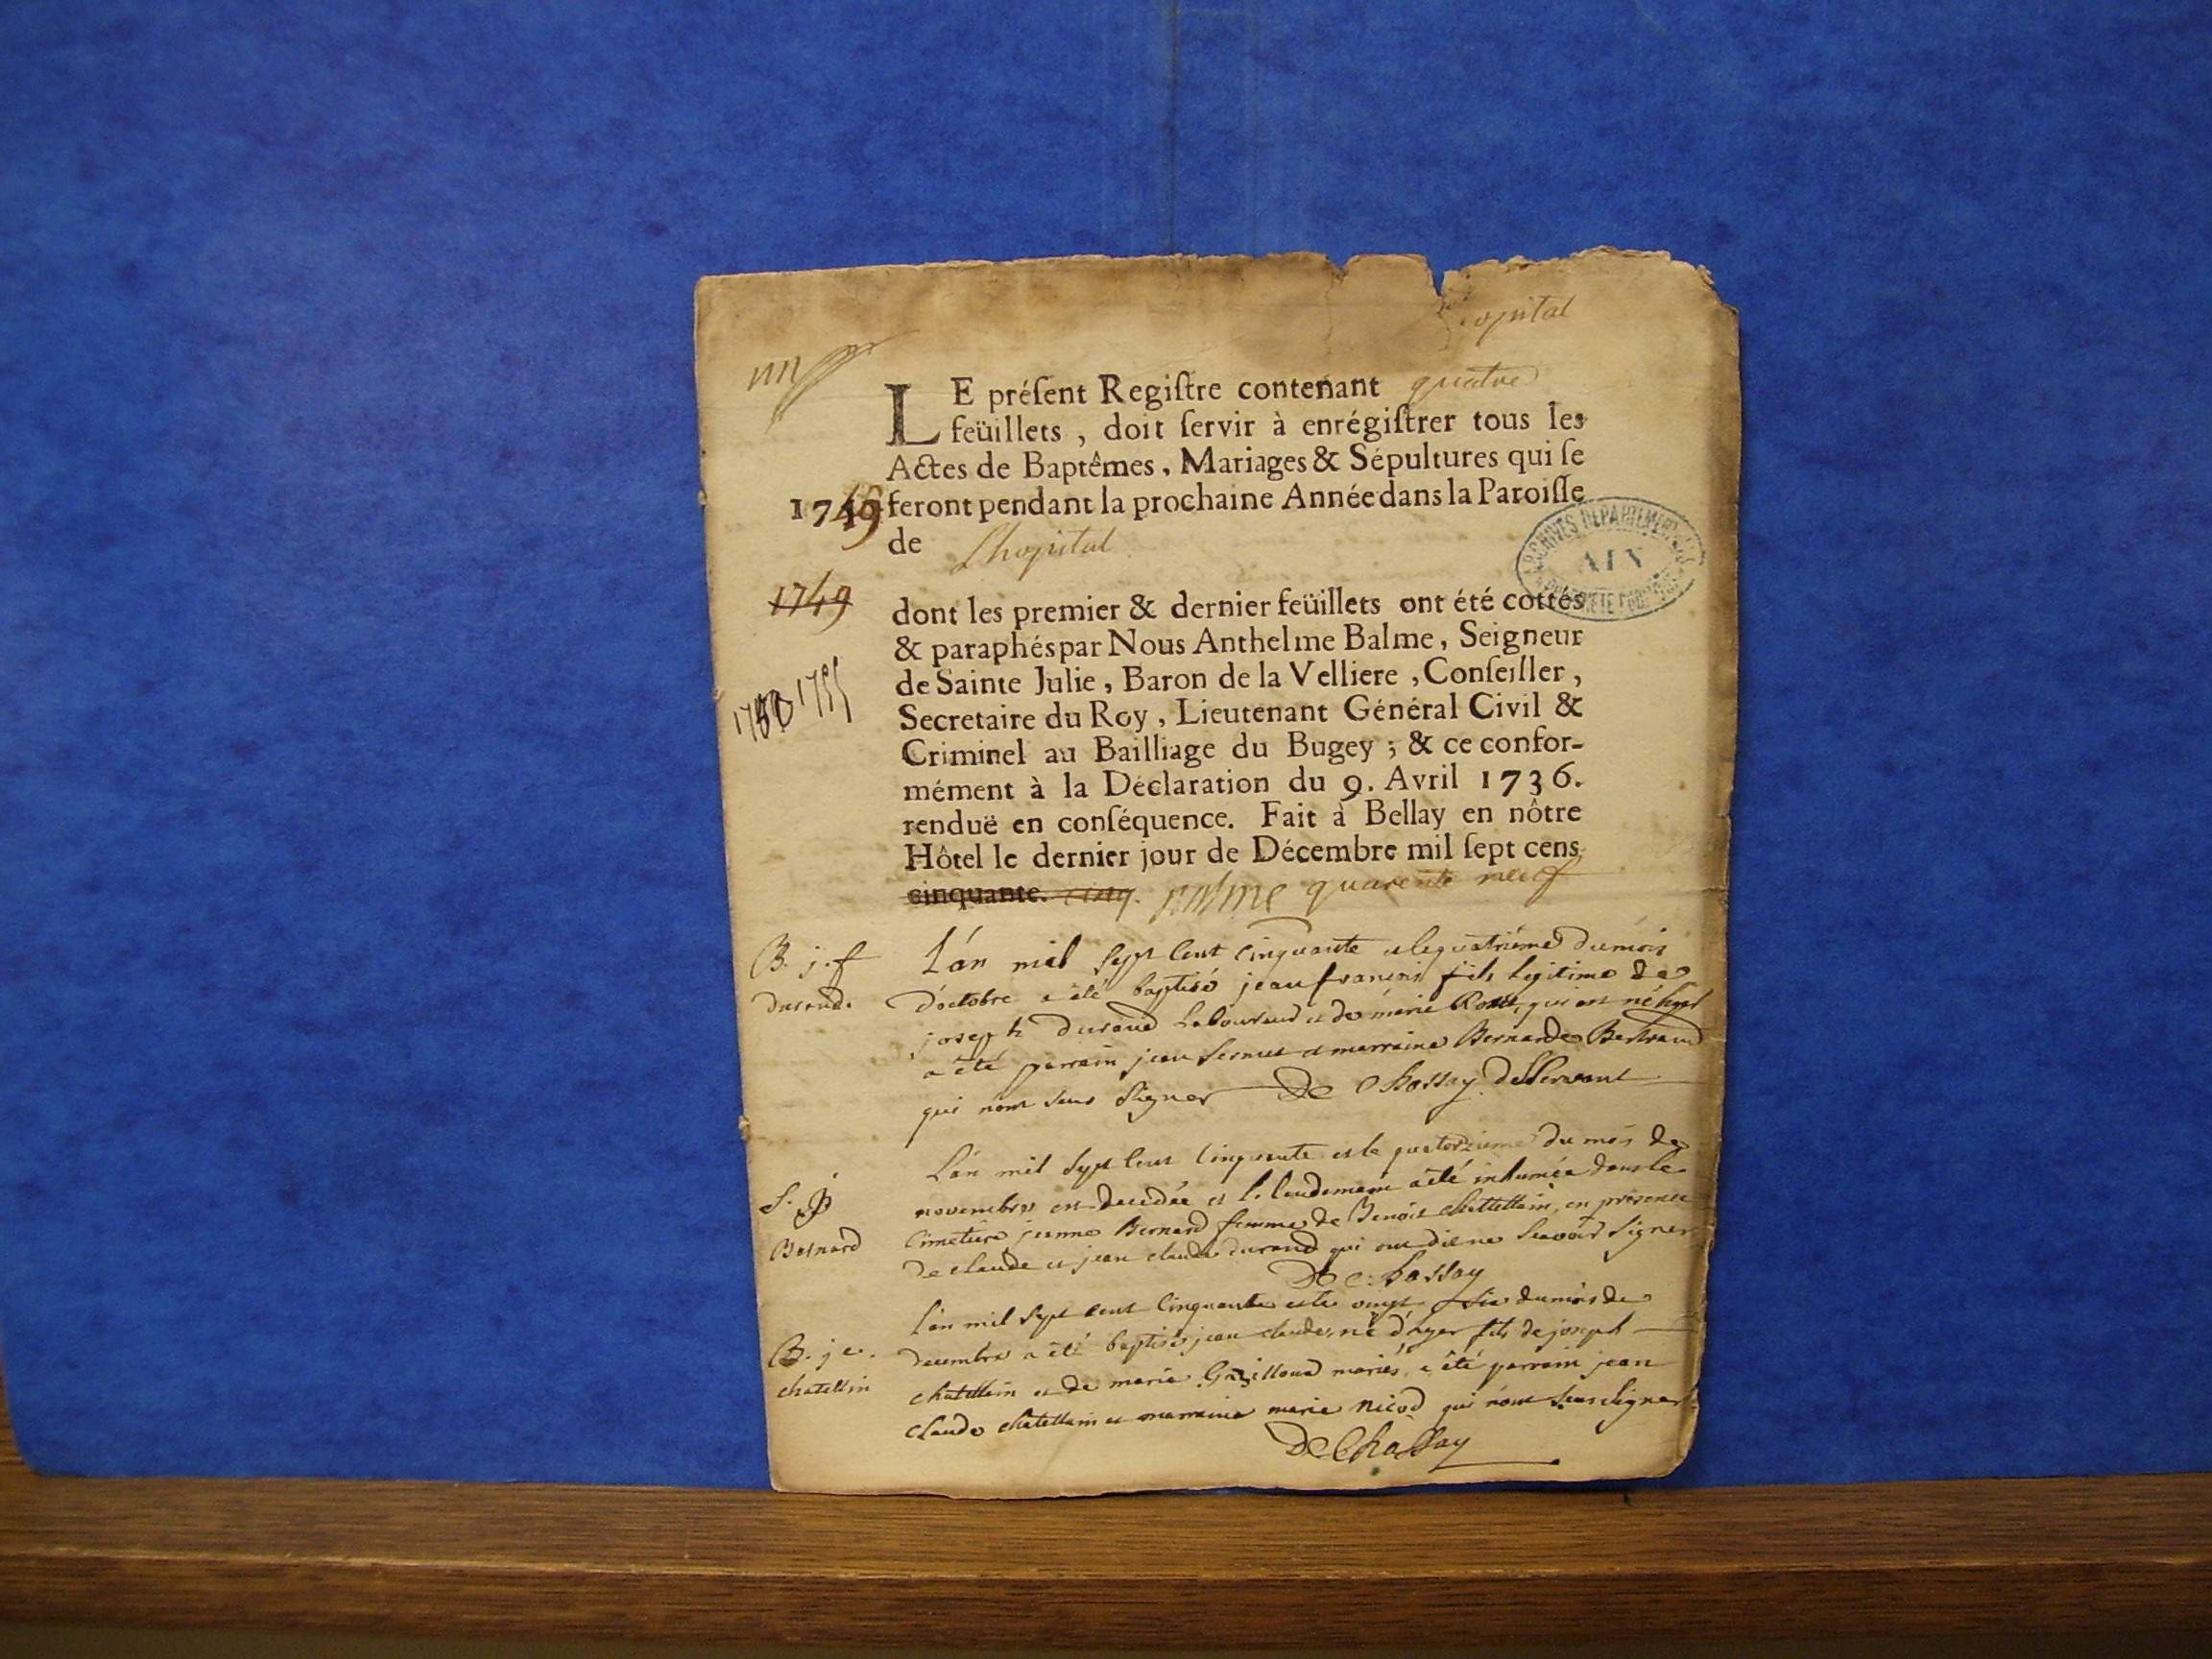 hopital
LE préſent Regiſtre contenant quatre
feüillets, doit ſervir à enrégiſtrer tous les
Actes de Baptêmes, Mariages & Sépultures qui ſe
1749 feront pendant la prochaine Année dans la Paroiſſe
de Lhopital
ARCHIVES DEPARTEMENTALES
AIN
PROPRIETE PUBLIQUE
1749
dont les premier & dernier feüillets ont été cottés
& paraphés par Nous Anthelme Balme, Seigneur
de Sainte Julie, Baron de la Velliere, Conſeiller,
1750 1755
Secretaire du Roy, Lieutenant Général Civil &
Criminel au Bailliage du Bugey; & ce confor-
mément à la Déclaration du 9. Avril 1736.
renduë en conſéquence. Fait à Bellay en nôtre
Hôtel le dernier jour de Décembre mil ſept cens
cinquante. cinq. quarente neuf
B. j. f L'án mil sept cent cinquante et le quatriéme du mois
durand. d'octobre a été baptisé jean françois fils legitime de
joseph durand Laboureur et de marie qui est né
a été parrain jean et marraine Bernarde Bertrand
qui n'ont seus signer De Chossay desservant
L'án mil sept cent cinquante et le quatorzieme du mois de
S. j novembre est decedée et le lendemain a été inhumée dans le
Bernard Cimetiere jeanne Bernard femme de Benoit chatellain, en presence
de claude et jean claude durand qui ont dit ne scavoir signer
De Chossay
L'an mil sept cent cinquante et le vingt six du mois de
B. j c. decembre a été baptisé jean claude, né d'hyer fils de joseph
chatellin chatellain et de marie mariés, a été parrain jean
claude chatellain et marraine marie nicod qui n'ont seus signer
De Chossay